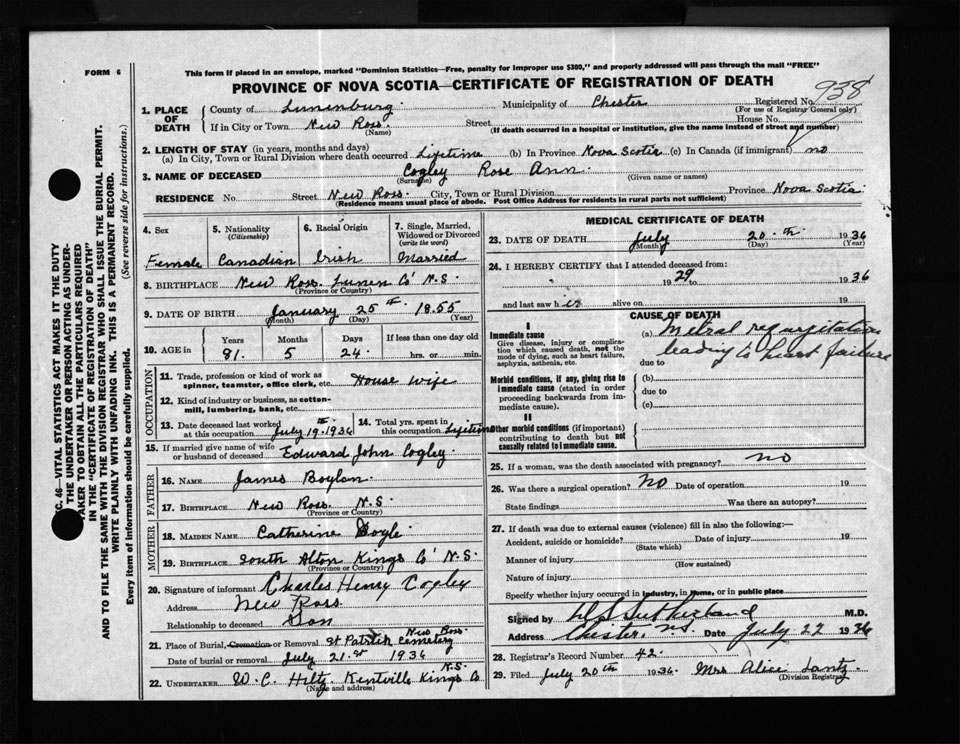 FORM 6
This form if placed in an envelope, marked "Dominion Statistics—Free, penalty for improper use $300," and properly addressed will pass through the mail "FREE"
PROVINCE OF NOVA SCOTIA—CERTIFICATE OF REGISTRATION OF DEATH
938
1. PLACE OF DEATH
County of Lunenburg Municipality of Chester Registered No.
(For use of Registrar General only)
If in City or Town New Ross Street House No.
(Name) (If death occurred in a hospital or institution, give the name instead of street and number)
2. LENGTH OF STAY (in years, months and days)
(a) In City, Town or Rural Division where death occurred Lifetime (b) In Province Nova Scotia (c) In Canada (if immigrant) no
3. NAME OF DECEASED Cogley Rose Ann
(Surname) (Given name or names)
RESIDENCE No. Street New Ross City, Town or Rural Division Province Nova Scotia
(Residence means usual place of abode. Post Office Address for residents in rural parts not sufficient)
4. Sex
Female
5. Nationality (Citizenship)
Canadian
6. Racial Origin
Irish
7. Single, Married, Widowed or Divorced (write the word)
Married
8. BIRTHPLACE New Ross Lunen Co N.S
(Province or Country)
9. DATE OF BIRTH January 25th 1855
(Month) (Day) (Year)
10. AGE in
Years Months Days If less than one day old
81 5 24 hrs. or min.
OCCUPATION
11. Trade, profession or kind of work as spinner, teamster, office clerk, etc. House wife
12. Kind of industry or business, as cotton-mill, lumbering, bank, etc.
13. Date deceased last worked at this occupation July 19th 1936
14. Total yrs. spent in this occupation Lifetime
15. If married give name of wife or husband of deceased Edward John Cogley
FATHER
16. NAME James Boylan
17. BIRTHPLACE New Ross N.S
(Province or Country)
MOTHER
18. MAIDEN NAME Catherine Boyle
19. BIRTHPLACE South Alton Kings Co N.S.
(Province or Country)
20. Signature of informant Charles Henry Cogley
Address New Ross
Relationship to deceased Son
21. Place of Burial, Cremation or Removal St Patrick Cemetery New Ross
Date of burial or removal July 21st 1936
22. UNDERTAKER W. C. Hiltz Kentville Kings Co N.S.
(Name and address)
MEDICAL CERTIFICATE OF DEATH
23. DATE OF DEATH July 20th 1936
(Month) (Day) (Year)
24. I HEREBY CERTIFY that I attended deceased from:
1929 to 1936
and last saw her alive on 19
CAUSE OF DEATH
I
Immediate cause
Give disease, injury or complication which caused death, not the mode of dying, such as heart failure, asphyxia, asthenia, etc.
(a) Metral regurgitation
leading to heart failure
due to
Morbid conditions, if any, giving rise to immediate cause (stated in order proceeding backwards from immediate cause).
(b)
due to
(c)
II
Other morbid conditions (if important) contributing to death but not causally related to immediate cause.
25. If a woman, was the death associated with pregnancy? no
26. Was there a surgical operation? No Date of operation 19
State findings Was there an autopsy?
27. If death was due to external causes (violence) fill in also the following:—
Accident, suicide or homicide? Date of injury 19
(State which)
Manner of injury
(How sustained)
Nature of injury
Specify whether injury occurred in industry, in home, or in public place
Signed by Sutherland M.D.
Address Chester, N.S. Date July 22 1936
28. Registrar's Record Number 42.
29. Filed July 20th 1936. Mrs Alice Lantz
(Division Registrar)
C. 46—VITAL STATISTICS ACT MAKES IT THE DUTY
THE UNDERTAKER OR PERSON ACTING AS UNDER-
TAKER TO OBTAIN ALL THE PARTICULARS REQUIRED
IN THE "CERTIFICATE OF REGISTRATION OF DEATH"
AND TO FILE THE SAME WITH THE DIVISION REGISTRAR WHO SHALL ISSUE THE BURIAL PERMIT.
WRITE PLAINLY WITH UNFADING INK. THIS IS A PERMANENT RECORD.
Every item of information should be carefully supplied. (See reverse side for instructions.)